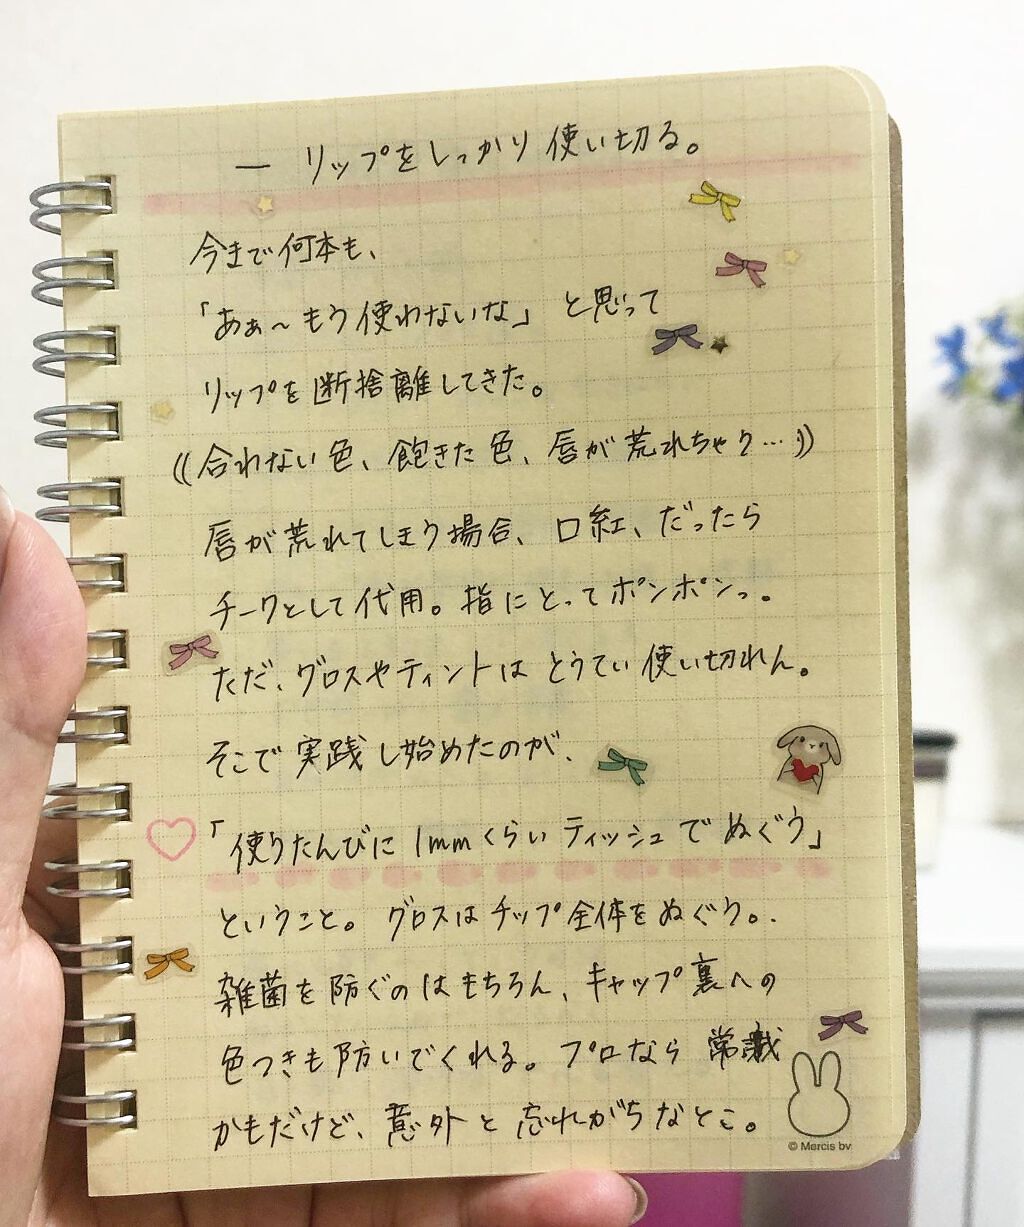 ー リップをしっかり使い切る。
今まで何本も、
「あぁ〜もう使わないな」と思って
リップを断捨離してきた。
((合わない色、飽きた色、唇が荒れちゃう…))
唇が荒れてしまう場合、口紅、だったら
チークとして代用。指にとってポンポンっ。
ただ、グロスやティントはとうてい使い切れん。
そこで実践し始めたのが、
「使うたんびに1mmくらいティッシュでぬぐう」
ということ。グロスはチップ全体をぬぐう。.
雑菌を防ぐのはもちろん、キャップ裏への
色つきも防いでくれる。プロなら常識
かもだけど、意外と忘れがちなとこ。
© Mercis bv